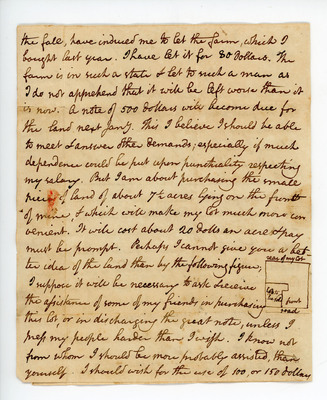 the fale, have induced me to let the farm, which I
bought last year. I have let it for 80 Dollars. The
farm is in such a state & let to such a man as
I do not apprehend that it will be left worse than it
is now. A note of 500 dollars will become due for
the land next Jany. This I believe I should be able
to meet & answer other demands, especially if much
dependence could be put upon punctuality respecting
my salary. But I am about purchasing the small
piece of land of about 7½ acres lying on the front
of mine, & which will make my lot much more con
venient. It will cost about 20 dolls an acre & pay
must be prompt. Perhaps I cannot give you a bet
ter idea of the land than by the following figure,
rear of my lot
I suppose it will be necessary to ask & receive
the assistance of some of my friends in purchasing
front
road
this lot, or in discharging the great note, unless I
press my people harder than I wish. I know not
from whom I should be more probably assisted, than
yourself. I should wish for the use of 100, or 150 dollars,